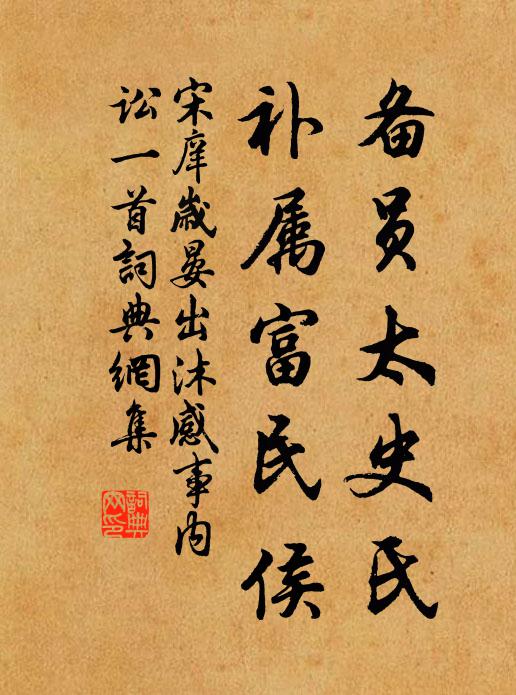 备员太史氏
补属富民侯
宋庠歲晏出沐感事内
讼一首詞典網集
詞典
网印